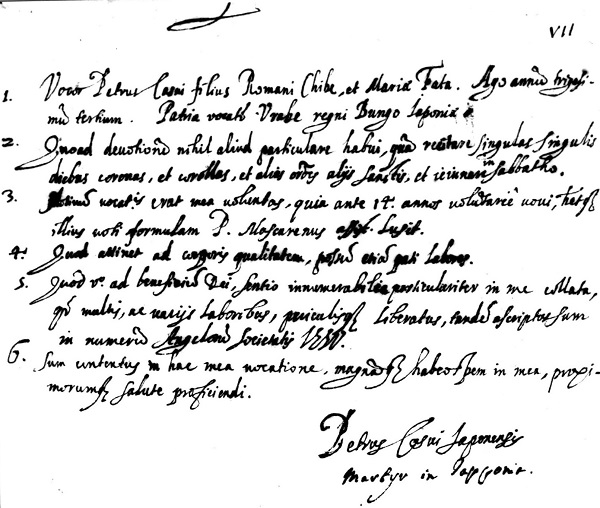 VII
1. Vocor Petrus Casui filius Romani Chibe, et Mariæ Fata. Ago annũ trigesi-
mũ tertium. Patria vocatr Vrabe regni Bungo Iaponiæ
2. Quoad devotionẽ nihil aliud particulare habui, quã recitare singulas singulis
diebus coronas, et corollas, et alias orões alijs Sanctis, et ieiunare in Sabbatho.
3. vocatis erat mea voluntas, quia ante 14. annos volũtariè voui,
illius voti formulam P. Mascarenus assist. Lusit.
4. Quod attinet ad corporis qualitatem, possũ etiam pati labores.
5. Quod vº. ad beneficiũ Dei, sentio innumerabilia particulariter in me collata,
qd multis, ac varijs laboribus, periculisq; liberatus, tandẽ ascriptus sum
in numerũ Angelorũ Societatis
6. Sum contentus in hac mea vocatione, magnãq; habeo spem in mea, proxi-
morumq; salute proficiendi.
Petrus Casui Iaponensis
Martyr in Iapponia.